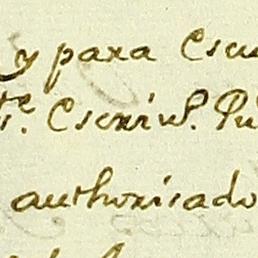 y para Escu
te. Escriv.l Pu
authorisado